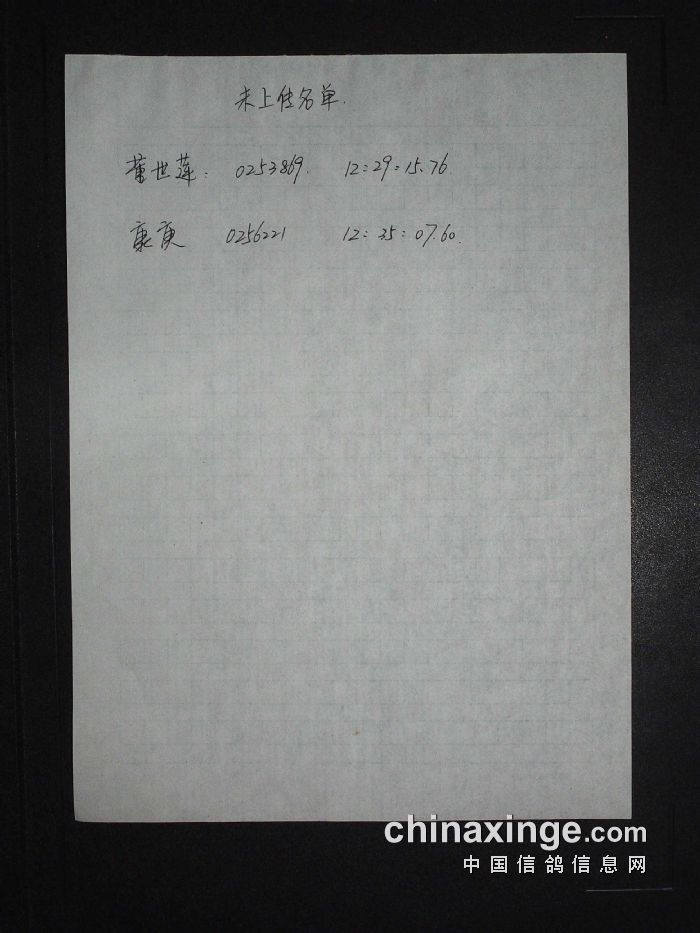 未上传名单.
董世莲: 0253869. 12:29:15.76.
康庚 0256221 12:35:07.60.
chinaxinge.com
中国信鸽信息网